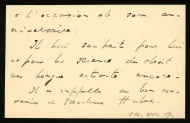 à l'occasion de son an-
niversaire.
Il lui souhaite pour lui
et pour la science du droit
une longue activité encore.
Il se rappelle au bon sou-
venir de Madame Huber.
14. VII. 19.